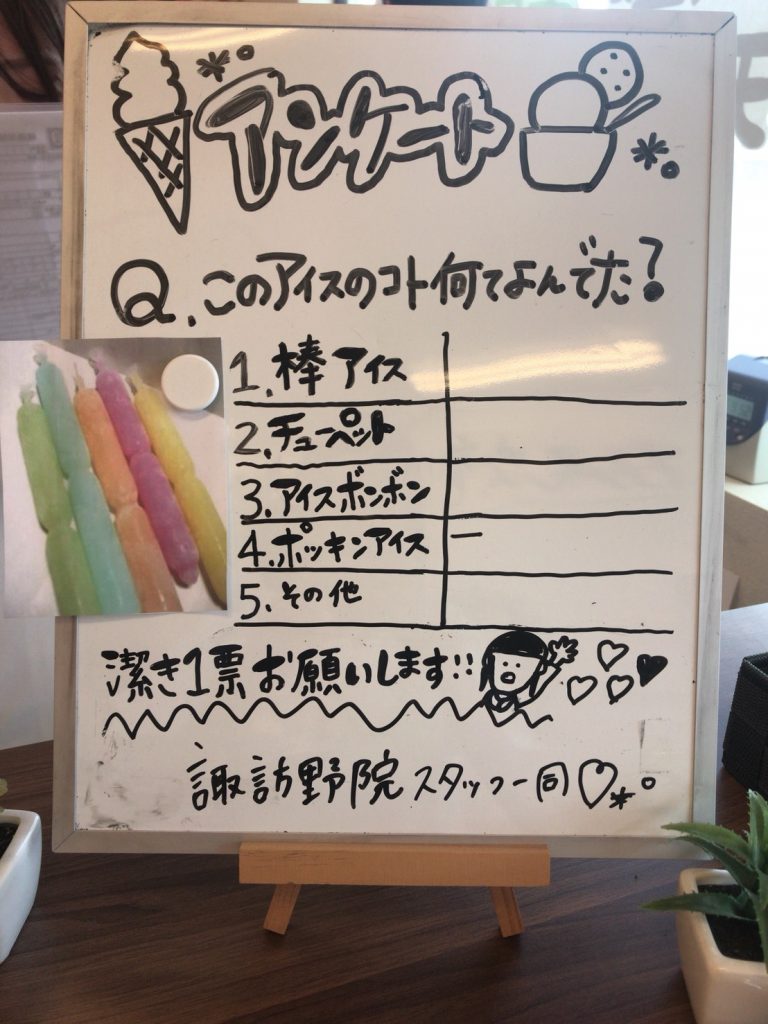 アンケート
Q.このアイスのコト何てよんでた?
1.棒アイス
2.チューペット
3.アイスボンボン
4.ポッキンアイス 一
5.その他
潔き1票お願いします!!
諏訪野院スタッフ一同